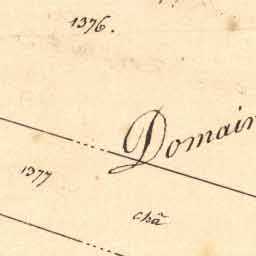 1376.
Domain
1377
chã